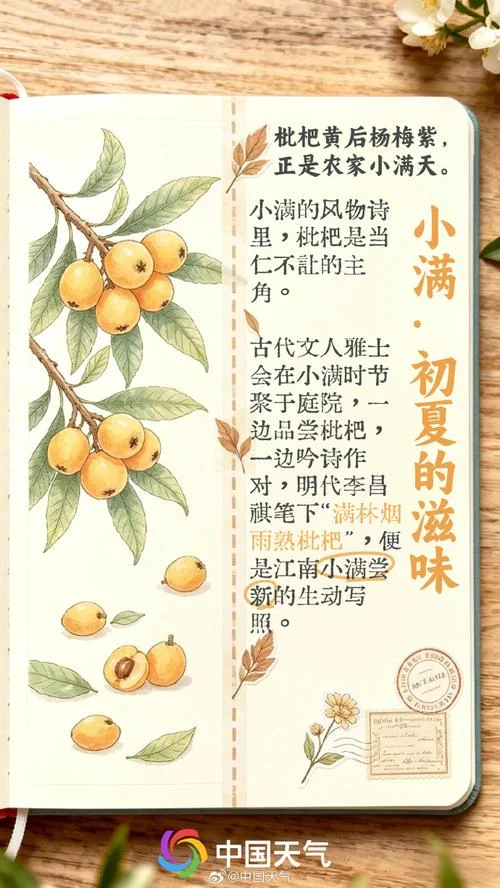 枇杷黄后杨梅紫，
正是农家小满天。
小满·初夏的滋味
小满的风物诗
里，枇杷是当
仁不让的主
角。
古代文人雅士
会在小满时节
聚于庭院，一
边品尝枇杷，
一边吟诗作
对，明代李昌
祺笔下“满林烟
雨熟枇杷”，便
是江南小满尝
新的生动写
照。
中国天气
@中国天气